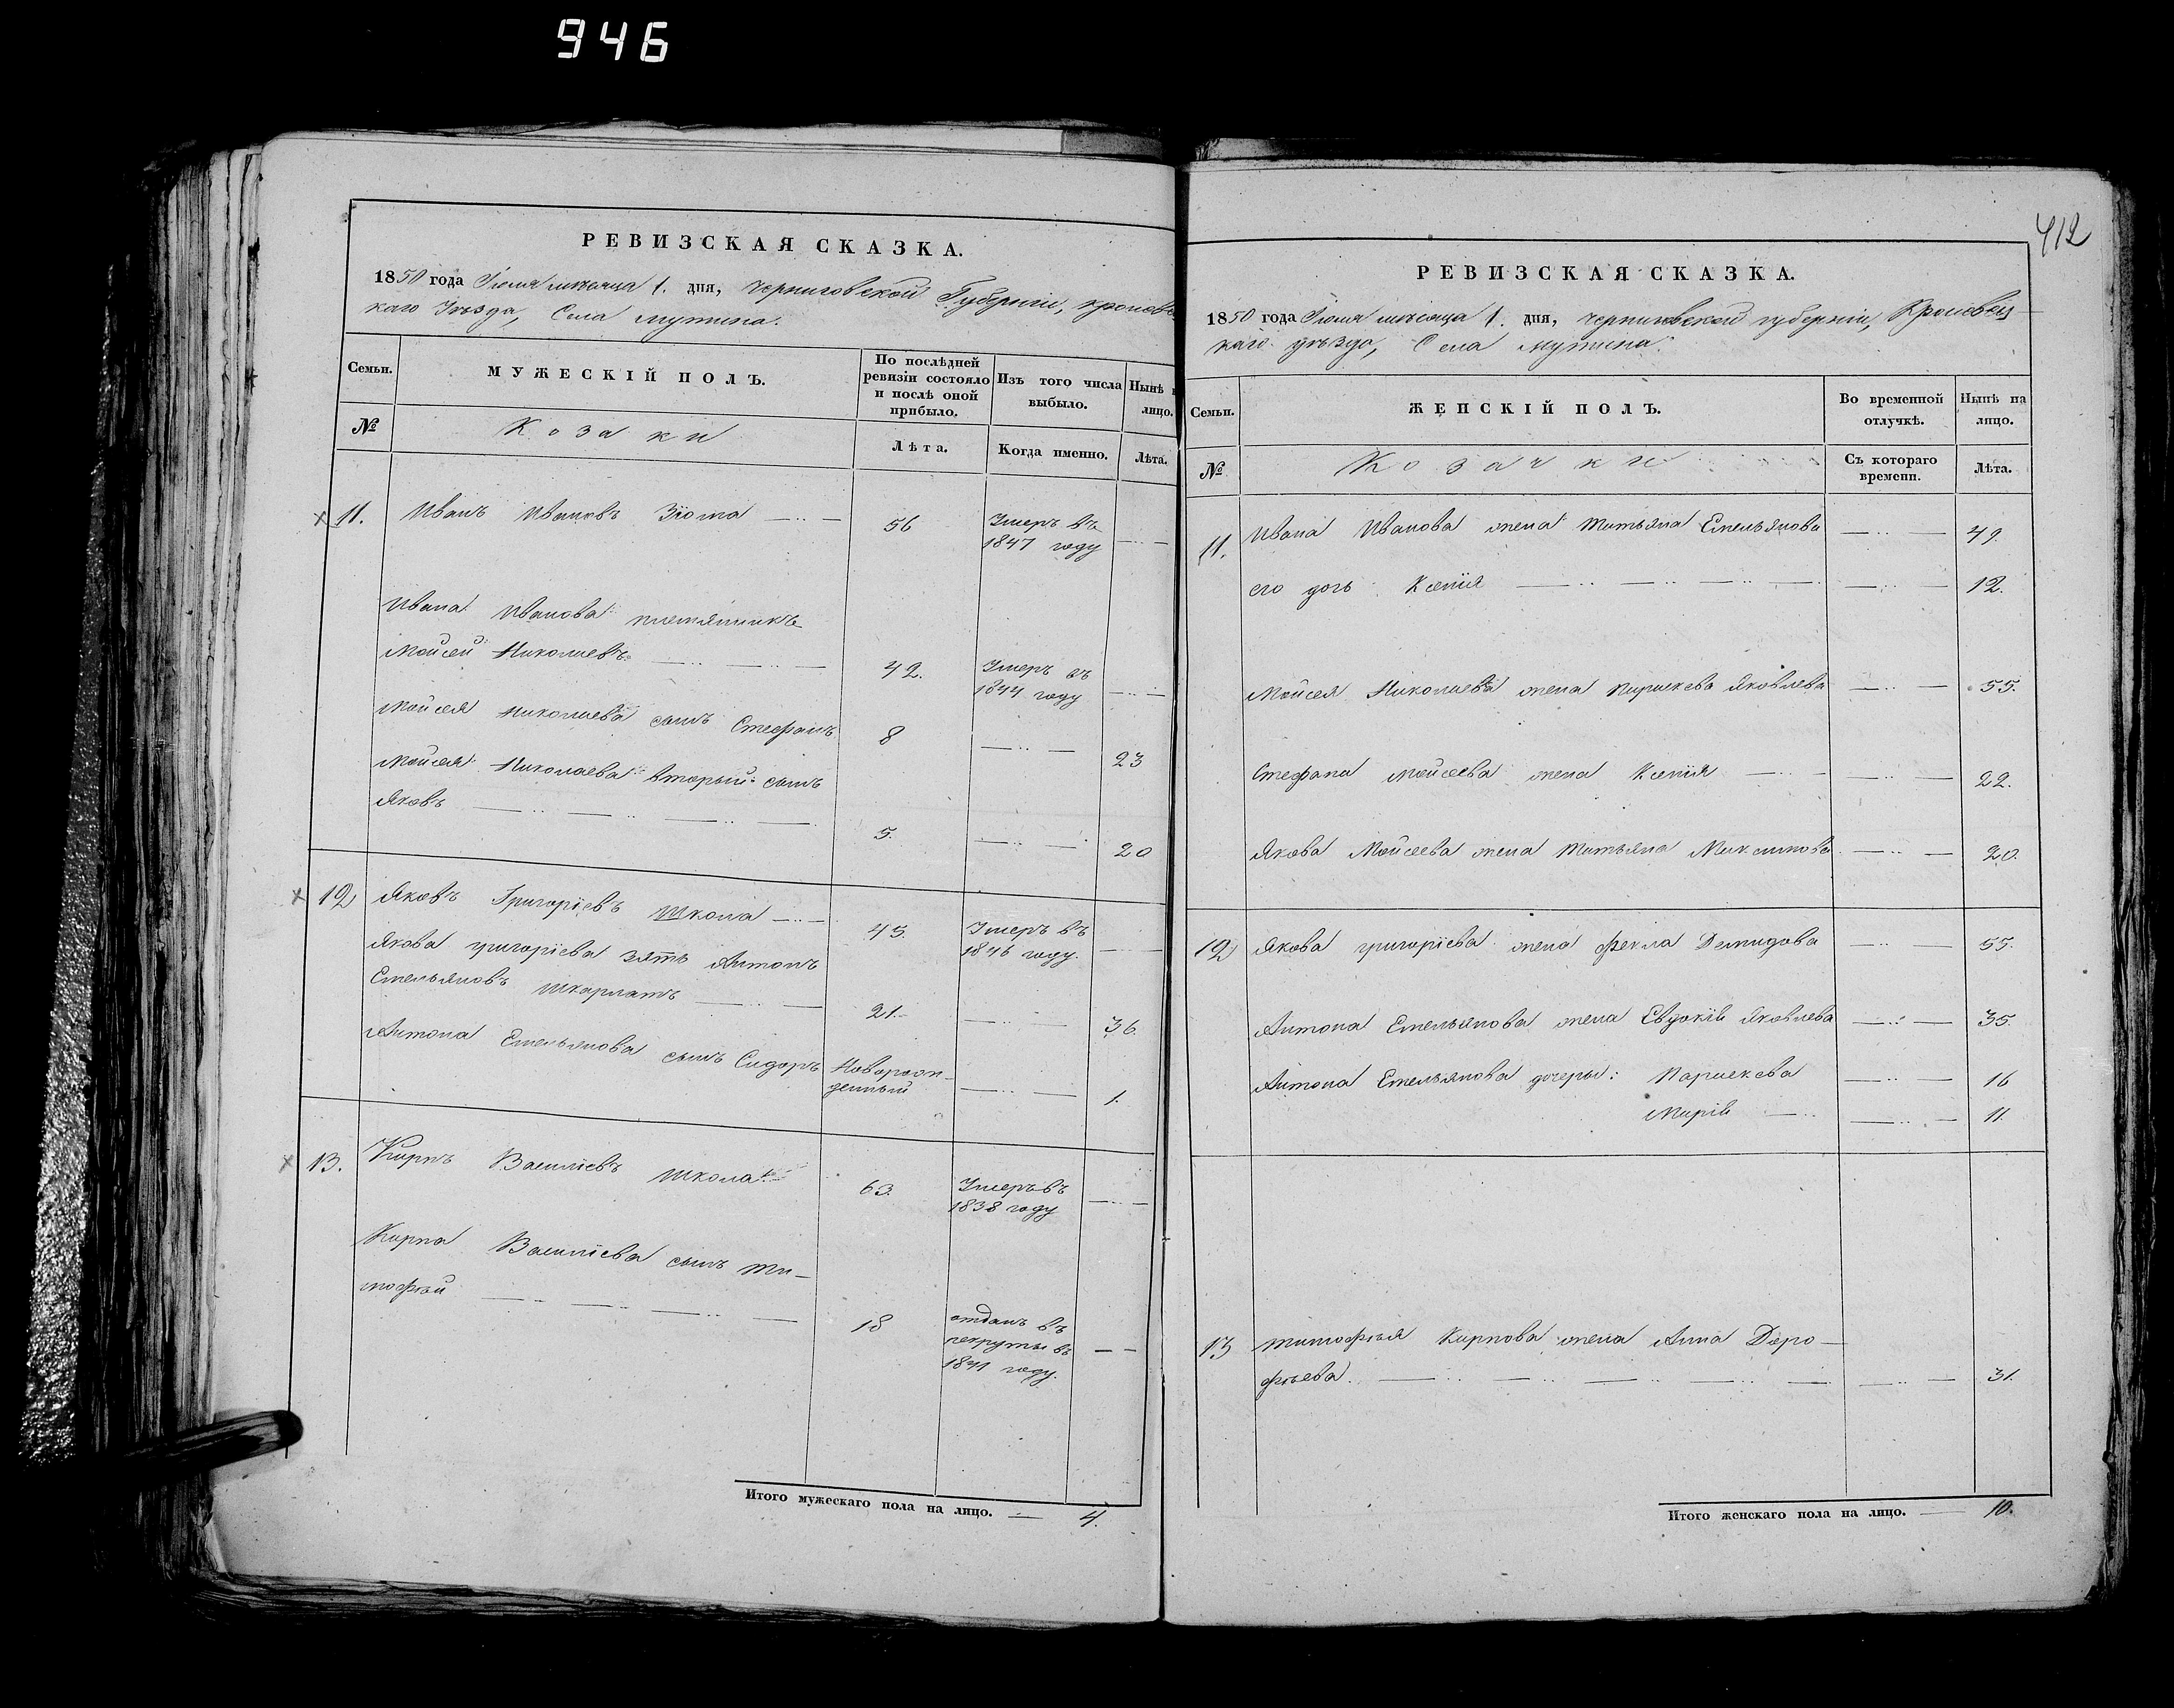 946
РЕВИЗСКАЯ СКАЗКА.
1850 года Іюля мѣсяца 1. дня, Черниговской Губерніи, кролевец
каго Уѣзда, Села Мутина.
Семьи.
МУЖЕСКІЙ ПОЛЪ.
По послѣдней
ревизіи состояло
и послѣ оной
прибыло.
Изъ того числа
выбыло.
Нынѣ н
лицо.
№
Козаки
Лѣта.
Когда именно.
Лѣта.
11. Иванъ Ивановъ Зюма 56 Умеръ въ
1847 году
Ивана Иванова племянникъ
Мойсей Николаевъ 42. Умеръ въ
1844 году
Мойсея Николаева сынъ Стефанъ 8 23
Мойсея Николаева вторый сынъ
Яковъ 5. 20
12 Яковъ Григоріевъ Школа 45. Умеръ въ
1846 году.
Якова григоріева зять Антонъ
Емельяновъ Шкарлатъ 21. 36.
Антона Емельянова сынъ Сидоръ Новорож-
денный 1.
13. Кирпъ Василіевъ Школа 63. Умеръ въ
1838 году
Кирпа Василіева сынъ Ти-
мофѣй 18 отданъ въ
рекруты въ
1841 году.
Итого мужескаго пола на лицо. 4.
412
РЕВИЗСКАЯ СКАЗКА.
1850 года Іюля мѣсяца 1. дня, черниговской губерніи, Кролевец
каго уѣзда, Села Мутина.
Семьи.
ЖЕНСКІЙ ПОЛЪ.
Во временной
отлучкѣ.
Нынѣ на
лицо.
№
Козачки
Съ котораго
времени.
Лѣта.
11. Ивана Иванова жена Татьяна Емельянова 49.
его дочь Ксенія 12.
Мойсея Николаева жена Параскева Яковлева 55.
Стефана Мойсеева жена Ксенія 22.
Якова Мойсеева жена Татьяна Максимова 20.
12 Якова григоріева жена Фекла Демидова 55.
Антона Емельянова жена Евдокія Яковлева 35.
Антона Емельянова дочеры: Параскева 16
Марія 11.
13 Тимофѣя Кирпова жена Анна Доро-
фѣева. 31.
Итого женскаго пола на лицо. 10.